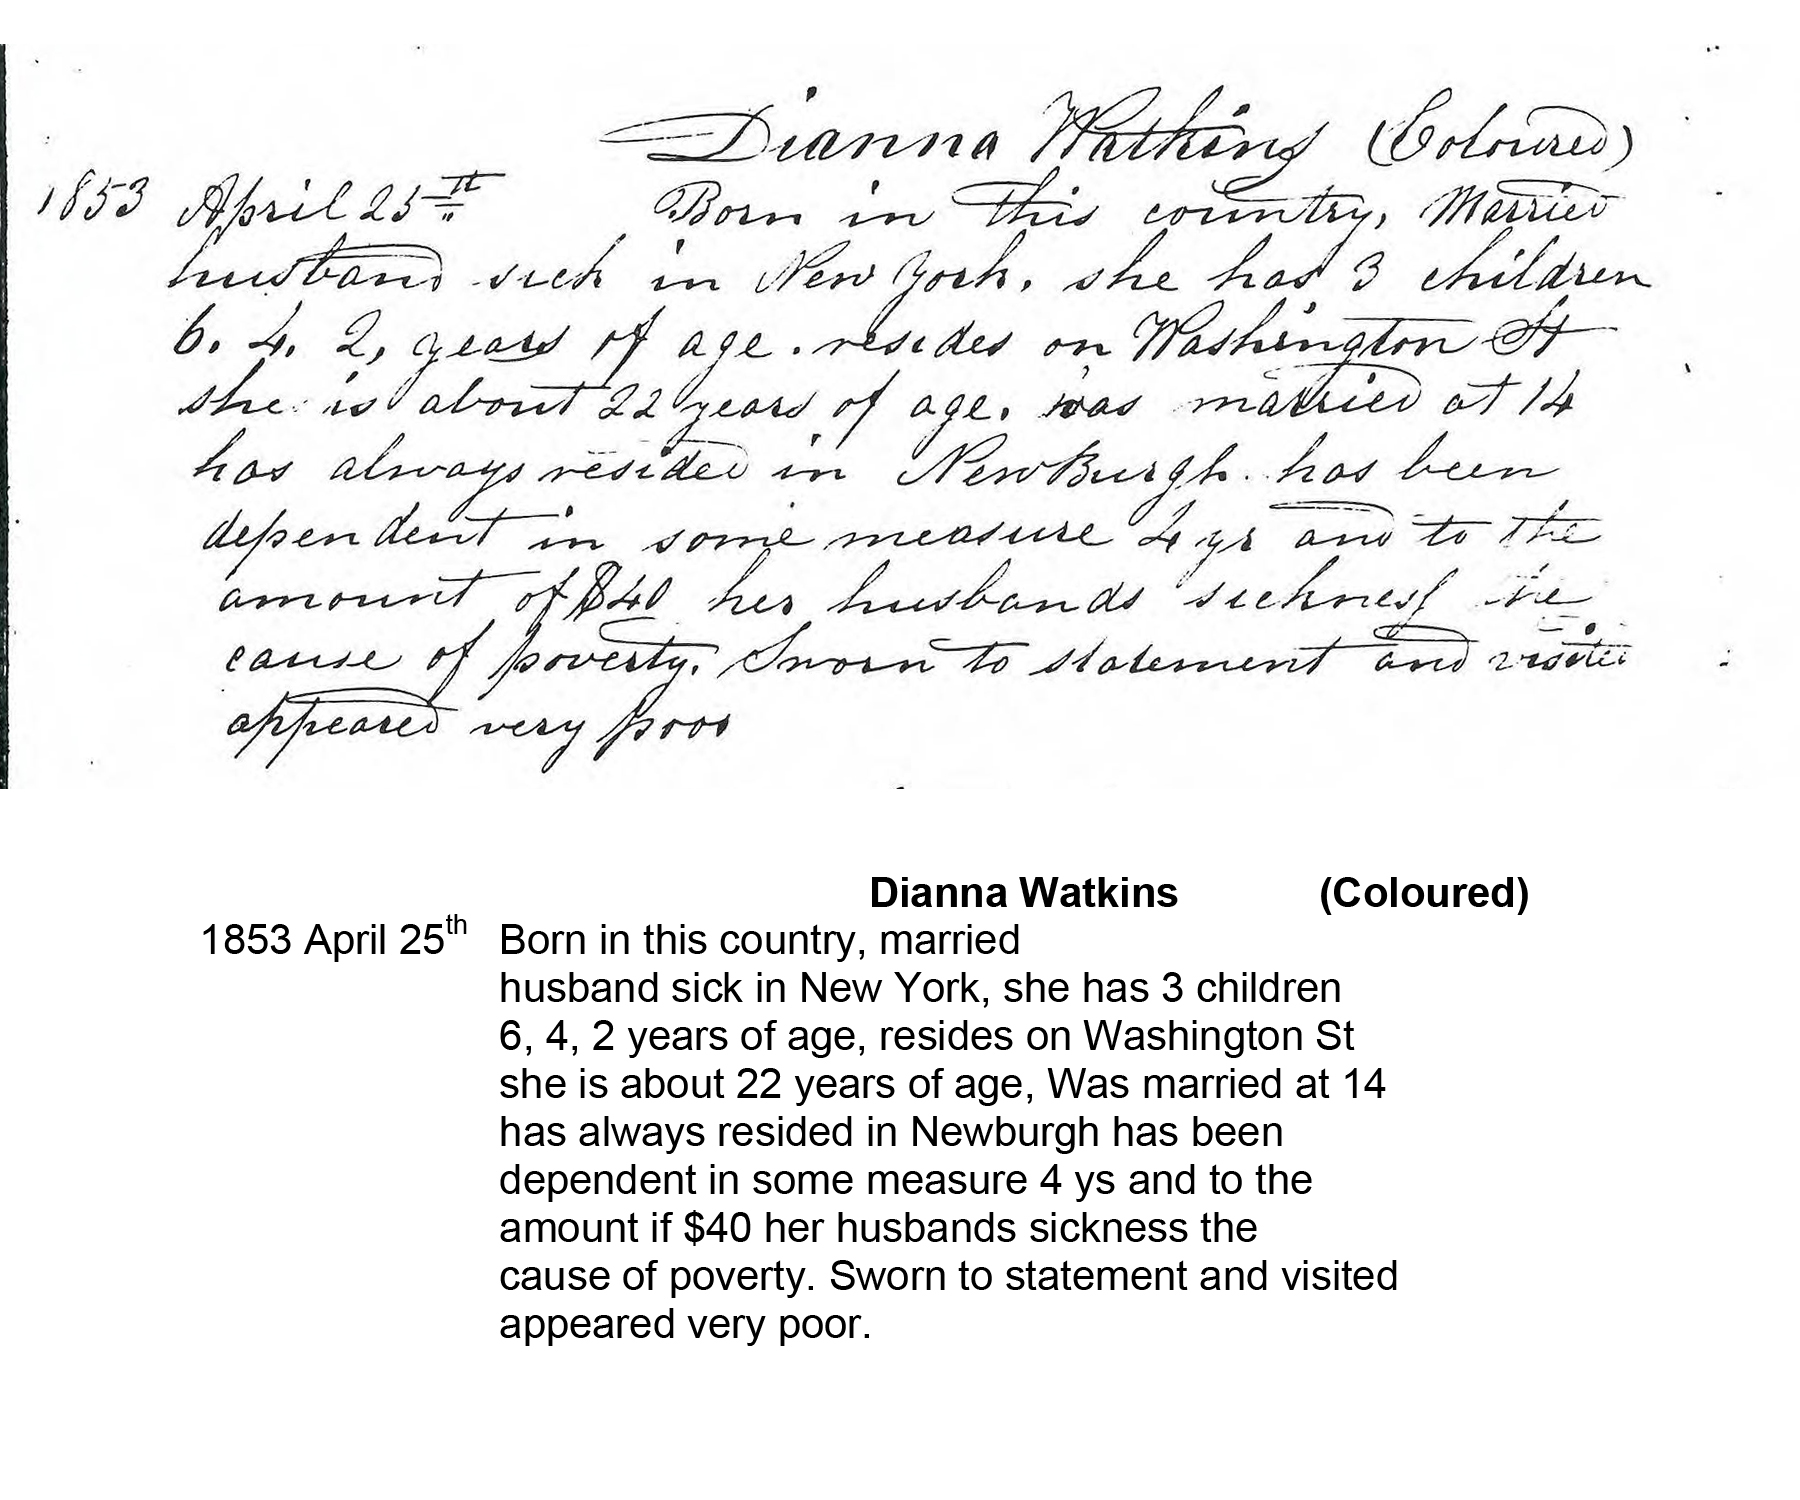 Dianna Watkins (Coloured)
1853 April 25th Born in this country, Married
husband sick in New York. she has 3 children
6. 4. 2, years of age. resides on Washington St
she is about 22 years of age. was married at 14
has always resided in NewBurgh. has been
dependent in some measure 4 yr and to the
amount of $40 her husbands sickness the
cause of poverty. Sworn to statement and visited
appeared very poor
Dianna Watkins (Coloured)
1853 April 25th Born in this country, married
husband sick in New York, she has 3 children
6, 4, 2 years of age, resides on Washington St
she is about 22 years of age, Was married at 14
has always resided in Newburgh has been
dependent in some measure 4 ys and to the
amount if $40 her husbands sickness the
cause of poverty. Sworn to statement and visited
appeared very poor.